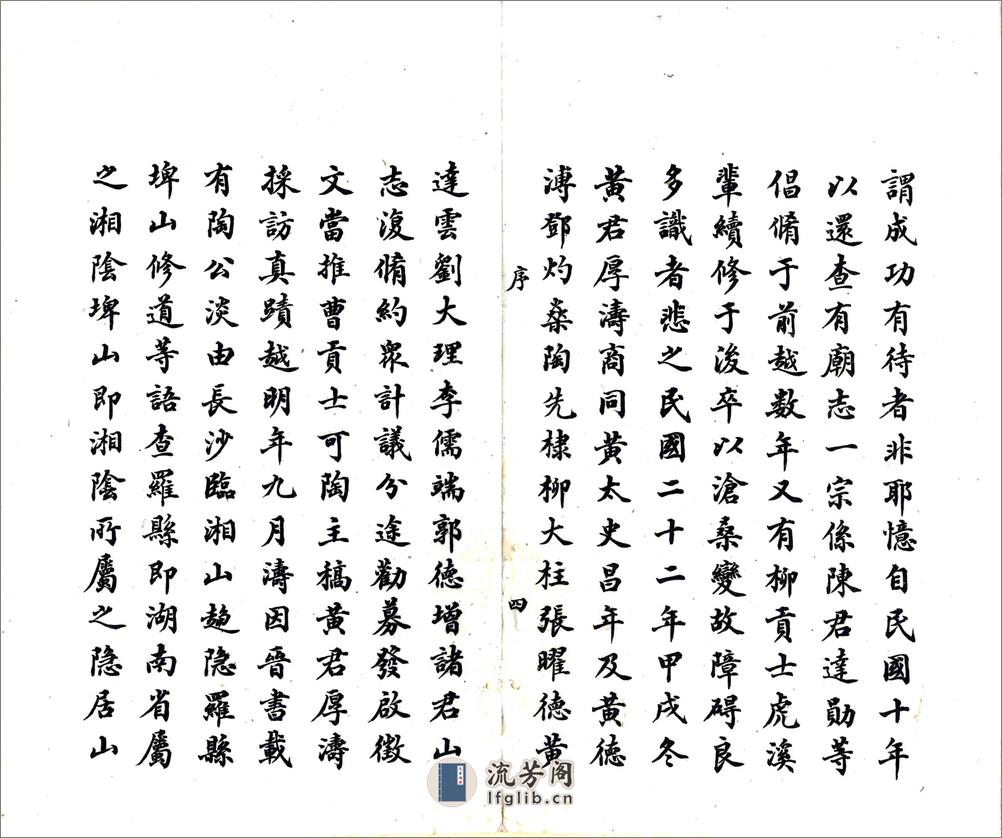 謂成功有待者非耶憶自民國十年
以還查有廟志一宗係陳君達勛等
倡脩于前越数年又有柳貢士虎溪
輩續修于后卒以滄桑變故障碍良
多識者悲之民國二十二年甲戌冬
黃君厚濤商同黃太史昌年及黃德
溥鄧灼燊陶先棣柳大柱張曜德黃
序
四
達雲劉大理李儒端郭德增諸君山
志復脩約衆計議分途勸募發啟徵
文當推曹貢士可陶主稿黃君厚濤
採訪真蹟越明年九月濤因晉書載
有陶公淡由長沙臨湘山趨隐羅縣
埤山修道等語查羅縣即湖南省屬
之湘陰埤山即湘陰所屬之隐居山
流芳阁
lfglib.cn